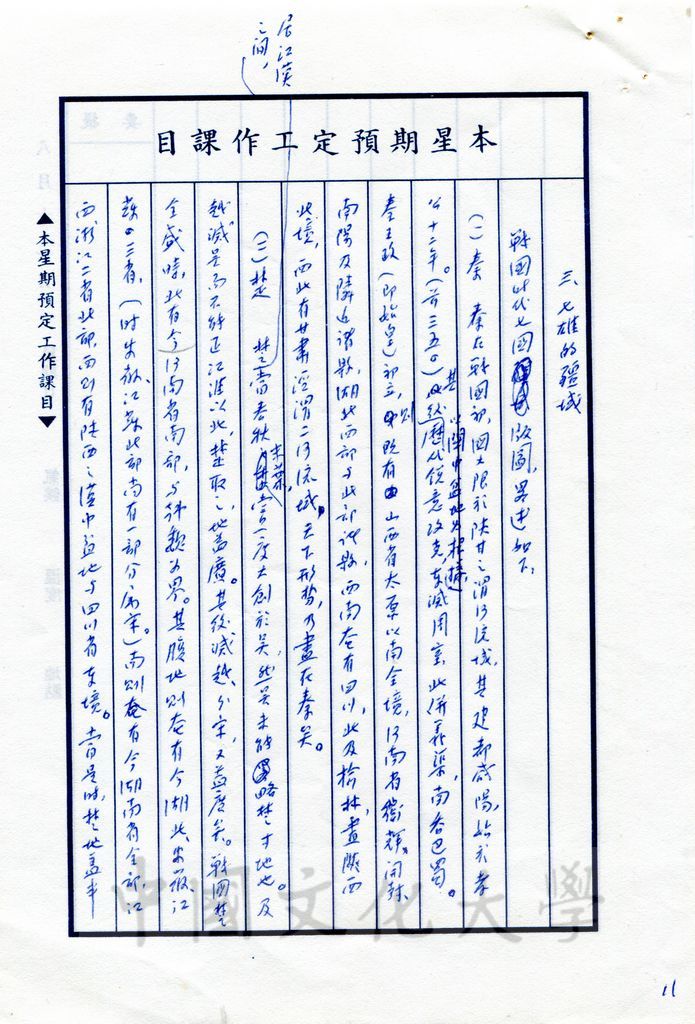 居江漢
之間，
目課作工定預期星本
三、七雄的疆域
戰國時代七國版圖，略述如下：
(一) 秦　秦在戰國初，國土限於陝甘之渭河流域，其建都咸陽，始於孝
公十二年。(前三五〇)其後歷代銳意攻克，以關中盆地為根據，東滅周室，北併義渠，南吞巴蜀。
秦王政(即始皇)初立，則既有山西省太原以南全境，河南省衛輝、開封、
南陽及隣近諸縣，湖北西部與北部諸縣，西南奄有四川，北及榆林，盡陝西
北境，西北有甘肅涇渭二河流域，天下形勢，乃盡在秦矣。
(二) 楚　楚當春秋末葉，嘗一度大創於吳，然吳未能略楚寸地也。及
越滅吳而不能正江淮以北，楚取之，地益廣。其後滅越、分宋，又益廣矣。戰國楚
全盛時，北有今河南省南部，與韓魏為界。其腹地則奄有今湖北、安徽、江
蘇三省，(時安徽、江蘇北部尚有一部分屬宋)南則奄有今湖南省全部，江
西浙江二省北部，西則有陝西之漢中盆地與四川省東境。當是時，楚地蓋半
▲本星期預定工作課目▼
中國文化大學
11